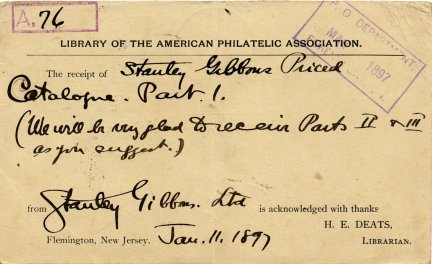 A. 76
P. O. DEPARTMENT,
1897
LIBRARY OF THE AMERICAN PHILATELIC ASSOCIATION.
The receipt of Stanley Gibbons Priced
Catalogue. Part 1.
(We will be very glad to receive Parts II & III
as you suggest.)
from Stanley Gibbons. Ltd is acknowledged with thanks
H. E. DEATS,
Flemington, New Jersey. Jan. 11. 1897 LIBRARIAN.